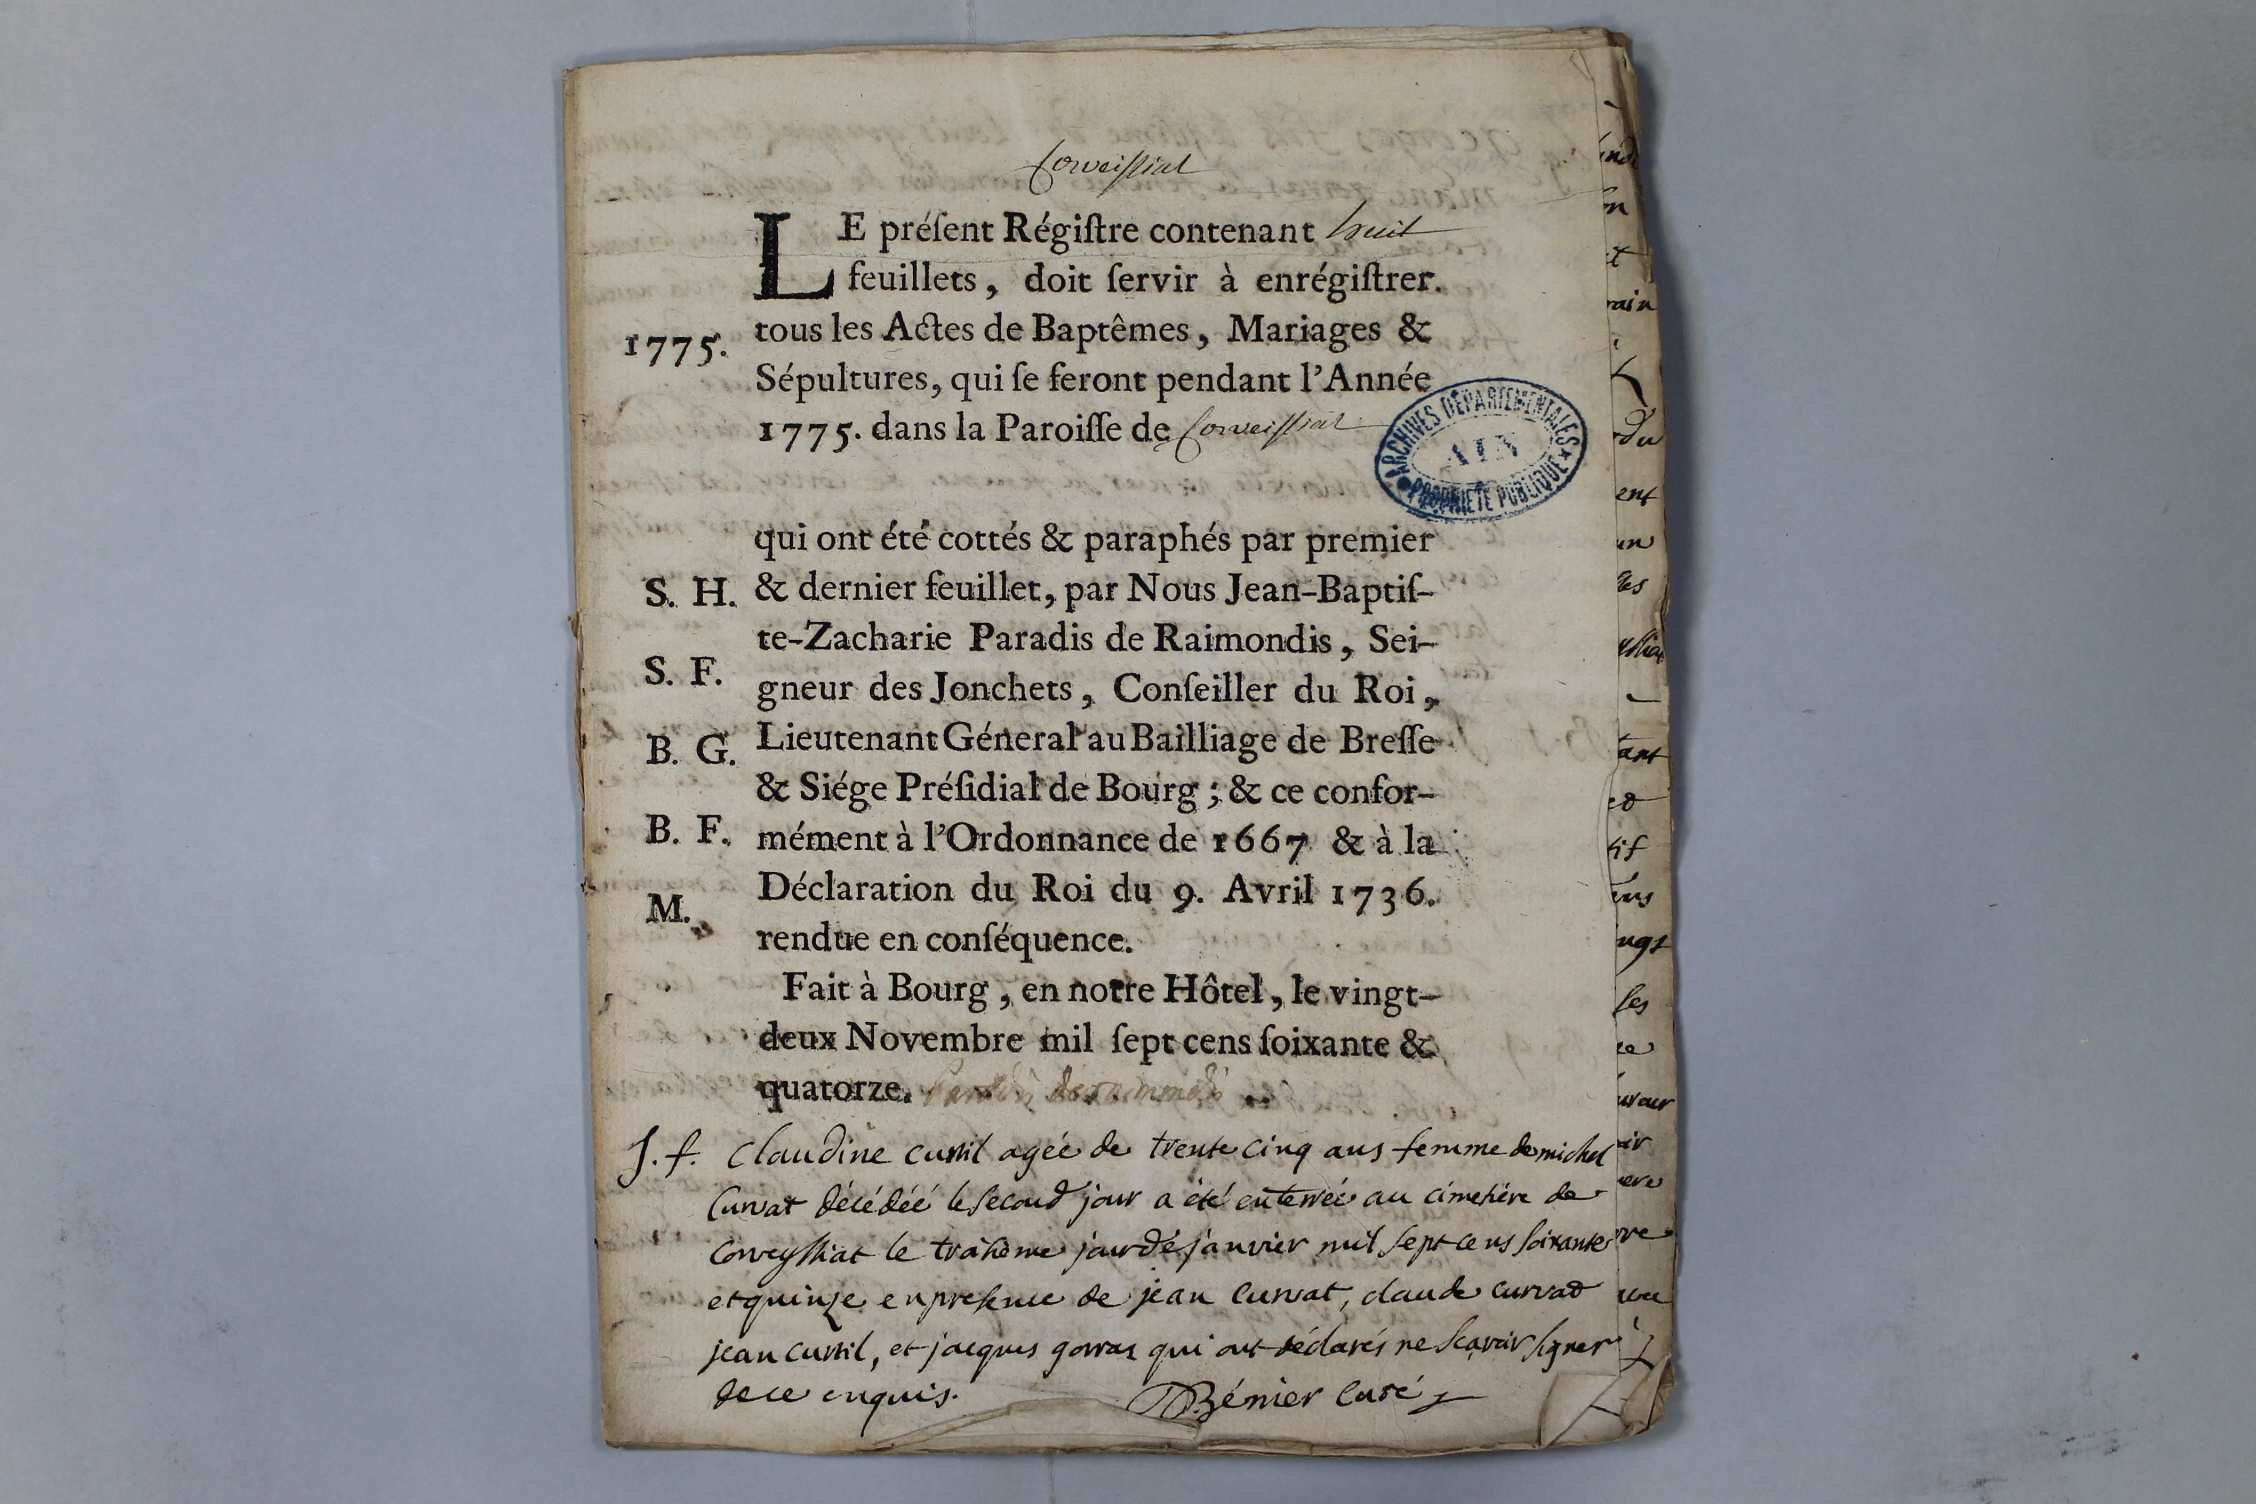 Corveissiat
LE préſent Régiſtre contenant huit
feuillets, doit ſervir à enrégiſtrer.
tous les Actes de Baptêmes, Mariages &
1775.
Sépultures, qui ſe feront pendant l'Année
1775. dans la Paroiſſe de Corveissiat
ARCHIVES DÉPARTEMENTALES
AIN
PROPRIÉTÉ PUBLIQUE
qui ont été cottés & paraphés par premier
S. H. & dernier feuillet, par Nous Jean-Baptiſ-
te-Zacharie Paradis de Raimondis, Sei-
S. F.
gneur des Jonchets, Conſeiller du Roi,
B. G. Lieutenant Géneral au Bailliage de Breſſe
& Siége Préſidial de Bourg ; & ce confor-
B. F. mément à l'Ordonnance de 1667 & à la
Déclaration du Roi du 9. Avril 1736.
M.
rendue en conſéquence.
Fait à Bourg, en notre Hôtel, le vingt-
deux Novembre mil ſept cens ſoixante &
quatorze.
S. f. Claudine curtil agée de trente cinq ans femme de michel
Curvat décédéé le second jour a été enterrée au cimetiére de
Corveyssiat le troisiéme jour de janvier mil sept cens soixante
et quinze en presence de jean Curvat, claude curvat
jean curtil, et jacques gorraz qui ont déclarés ne scavoir signer
de ce enquis. Bénier Curé